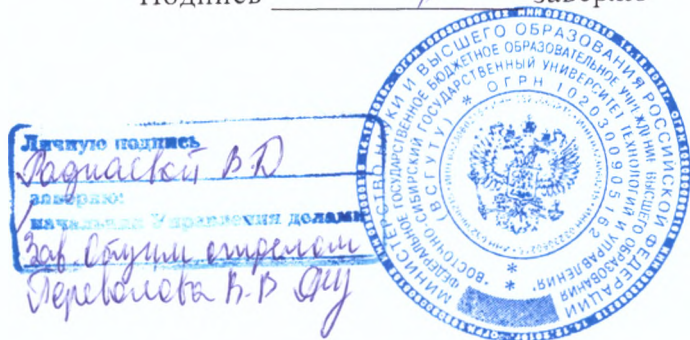 Подпись заверяю
Личную подпись
Раднаевой В.Д
заверяю:
начальник Управления делами
Зав. Общим отделом
Перевалова В.В
МИНИСТЕРСТВО НАУКИ И ВЫСШЕГО ОБРАЗОВАНИЯ РОССИЙСКОЙ ФЕДЕРАЦИИ
ФЕДЕРАЛЬНОЕ ГОСУДАРСТВЕННОЕ БЮДЖЕТНОЕ ОБРАЗОВАТЕЛЬНОЕ УЧРЕЖДЕНИЕ ВЫСШЕГО ОБРАЗОВАНИЯ
"ВОСТОЧНО-СИБИРСКИЙ ГОСУДАРСТВЕННЫЙ УНИВЕРСИТЕТ ТЕХНОЛОГИЙ И УПРАВЛЕНИЯ"
(ВСГУТУ) * ОГРН 1020300905162 *